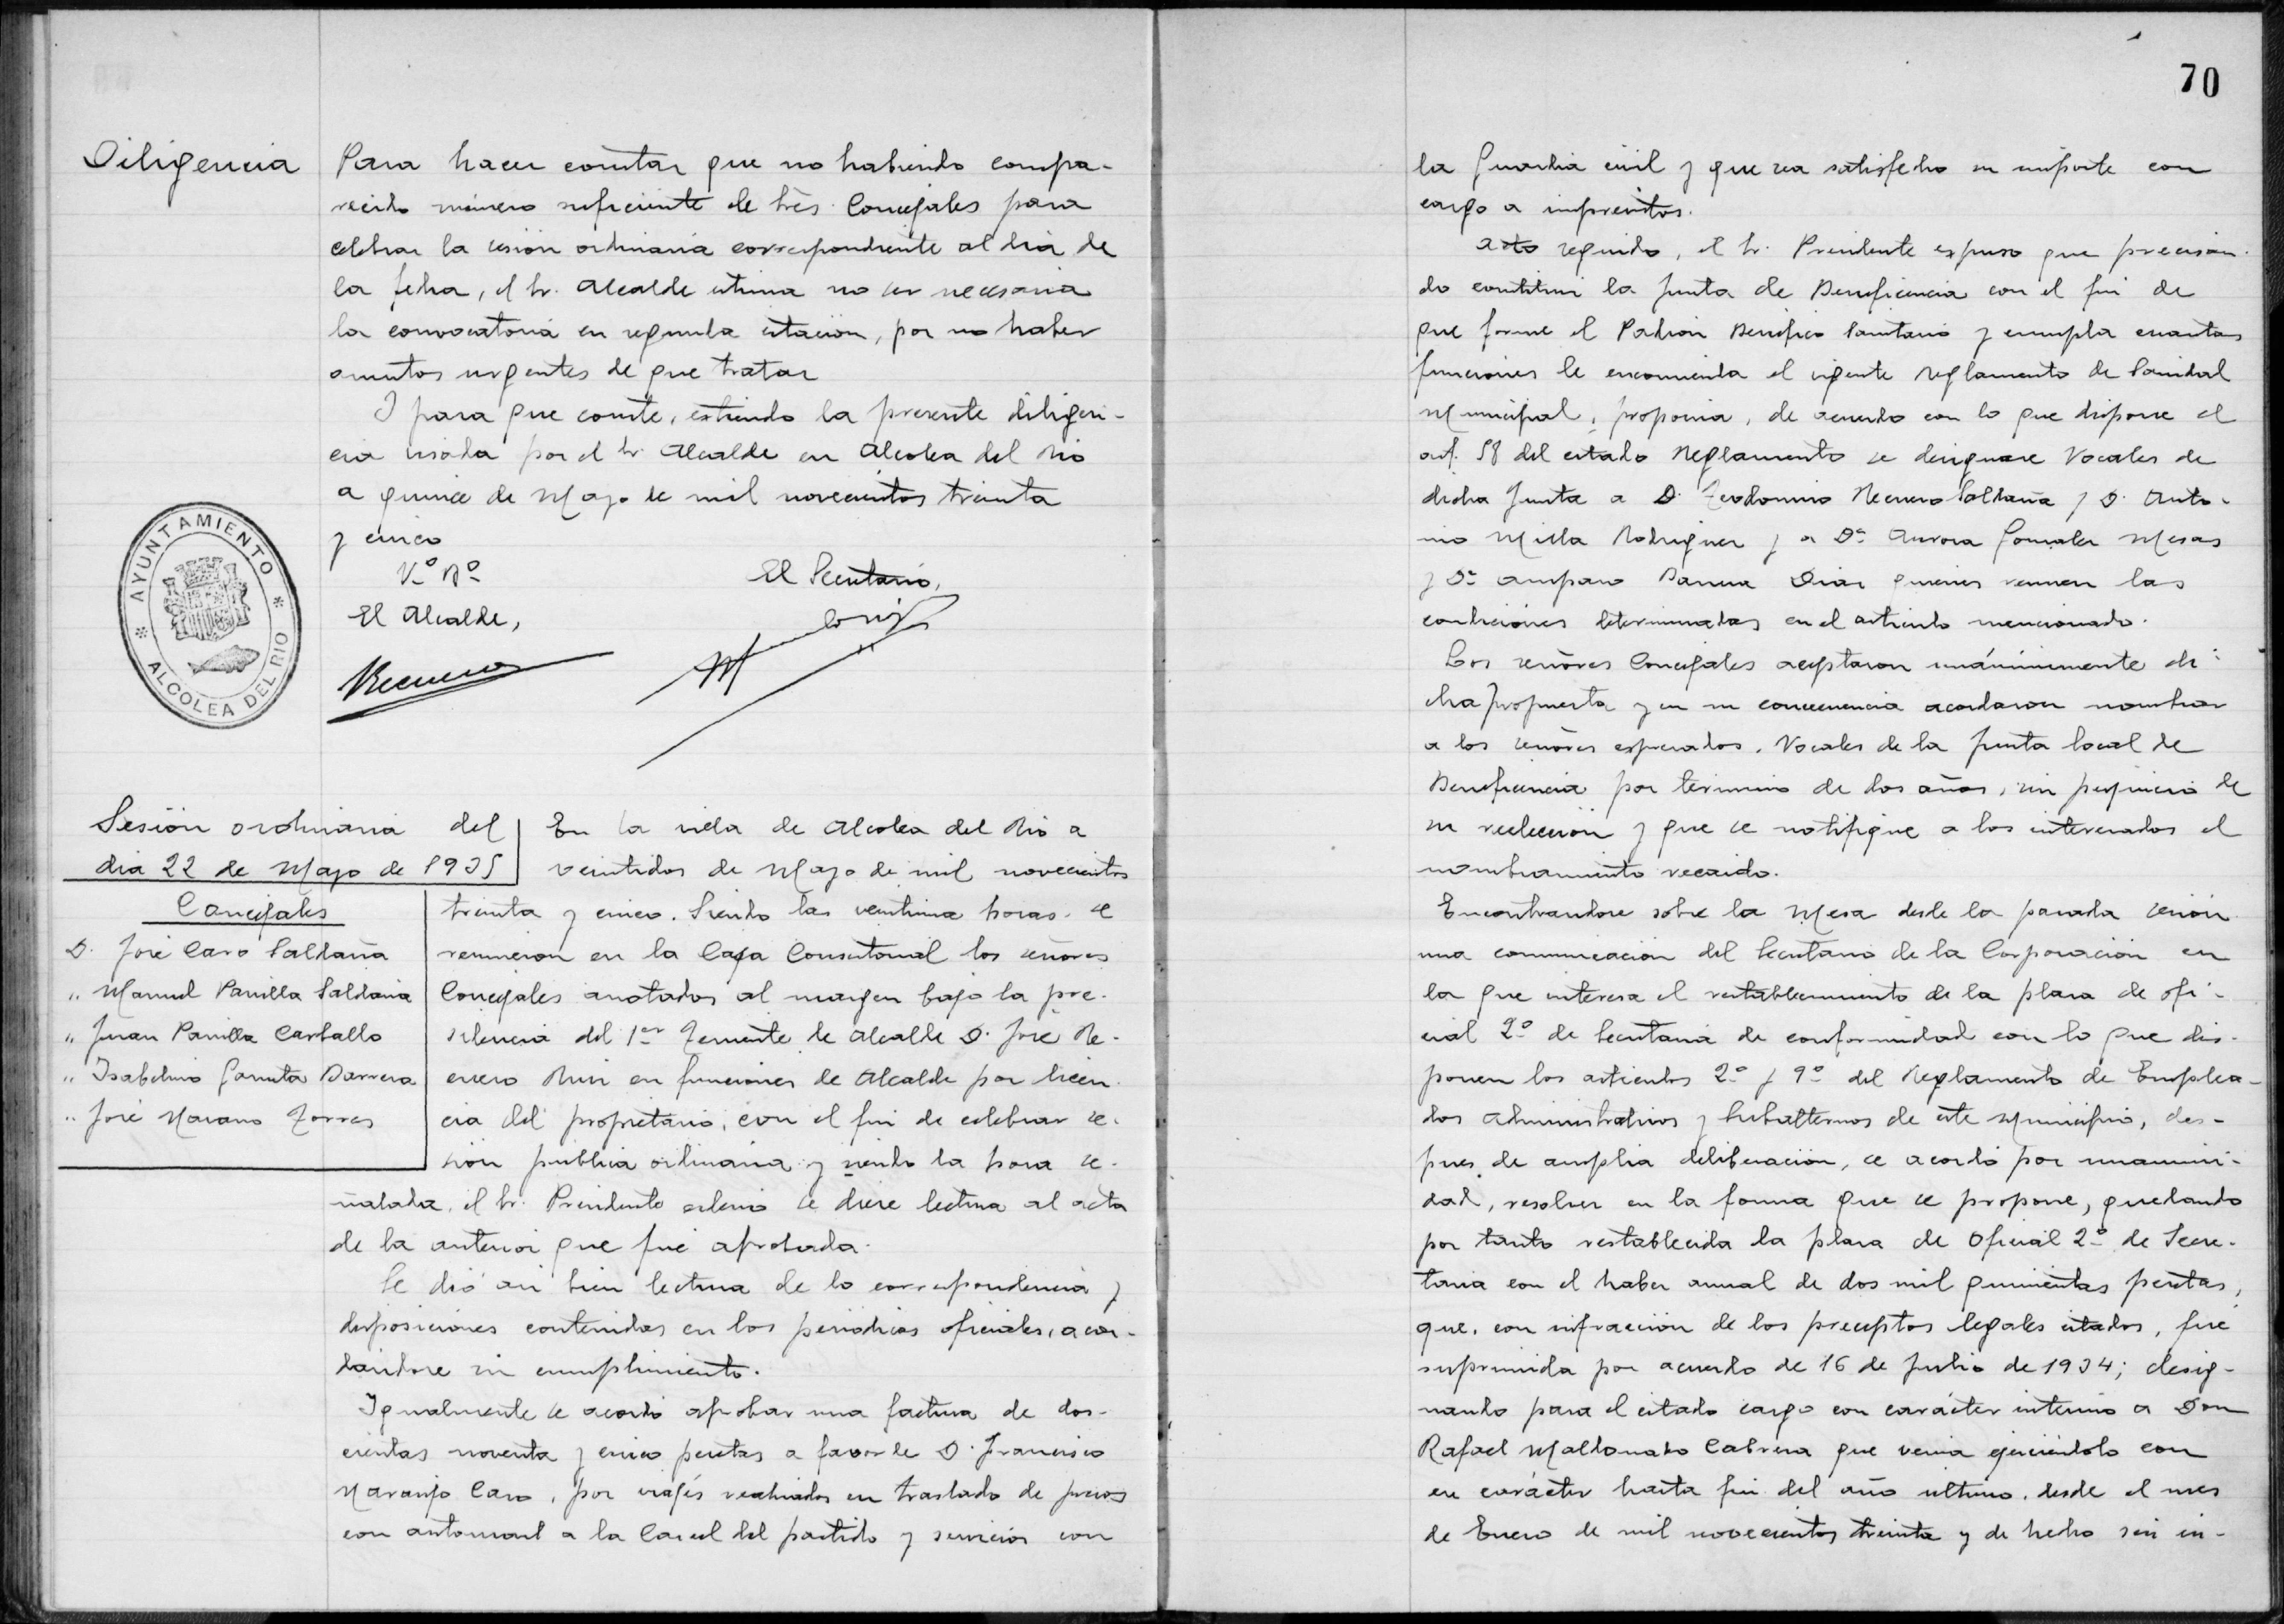 Diligencia
Para hacer constar que no habiendo compa-
recido número suficiente de tres Concejales para
celebrar la sesión ordinaria correspondiente al día de
la fecha, el Sr. Alcalde estima no ser necesaria
la convocatoria en segunda citación, por no haber
asuntos urgentes de que tratar
Y para que conste, estiendo la presente diligen-
cia visada por el Sr. Alcalde en Alcolea del Rio
a quince de Mayo de mil novecientos treinta
y cinco
Vº Bº
El Alcalde,
El Secretario,
Recuero
AYUNTAMIENTO
ALCOLEA DEL RIO
Sesión ordinaria del
día 22 de Mayo de 1935
Concejales
D. José Caro Saldaña
" Manuel Parrilla Saldaña
" Juan Parrilla Carballo
" Isabelino Garruta Barrera
" José Naranjo Torres
En la villa de Alcolea del Rio a
veintidos de Mayo de mil novecientos
treinta y cinco. Siendo las veintiuna horas se
reunieron en la Casa Consistorial los señores
Concejales anotados al margen bajo la pre-
sidencia del 1er Teniente de Alcalde D. José Re-
cuero Ruiz en funciones de Alcalde por licen-
cia del propietario, con el fin de celebrar se-
sión pública ordinaria y siendo la hora se-
ñalada, el Sr. Presidente ordenó se diese lectura al acta
de la anterior que fué aprobada.
Se dió asi bien lectura de la correspondencia y
disposiciones contenidas en los periódicos oficiales, acor-
dándose su cumplimiento.
Igualmente se acordó aprobar una factura de dos-
cientas noventa y cinco pesetas a favor de D. Francisco
Naranjo Caro, por viajes realizados en traslado de presos
con automovil a la Carcel del partido y servicios con
70
la Guardia civil y que sea satisfecho su importe con
cargo a imprevistos.
Acto seguido, el Sr. Presidente expuso que precisan-
do constituir la Junta de Beneficencia con el fin de
que forme el Padrón Benéfico Sanitario y cumpla cuantas
funciones le encomienda el vigente Reglamento de Sanidad
Municipal, proponia, de acuerdo con lo que dispone el
art. 58 del citado Reglamento se designase Vocales de
dicha Junta a D. Teodomiro Recuero Saldaña y D. Anto-
nio Milla Rodriguez y a Dª Aurora Gonzalez Mesas
y Dª Amparo Barrera Diaz quienes reunen las
condiciones determinadas en el articulo mencionado.
Los señores Concejales aceptaron unánimemente di-
cha propuesta y en su consecuencia acordaron nombrar
a los señores expresados, Vocales de la Junta local de
Beneficencia por término de dos años, sin perjuicio de
su reelección y que se notifique a los interesados el
nombramiento recaido.
Encontrandose sobre la Mesa desde la pasada sesión
una comunicación del Secretario de la Corporación en
la que interesa el restablecimiento de la plaza de ofi-
cial 2º de Secretaria de conformidad con lo que dis-
ponen los articulos 2º y 9º del Reglamento de Emplea-
dos Administrativos y Subalternos de este Municipio, des-
pues de amplia deliberación, se acordó por unanimi-
dad, resolver en la forma que se propone, quedando
por tanto restablecida la plaza de Oficial 2º de Secre-
taria con el haber anual de dos mil quinientas pesetas,
que, con infracción de los preceptos legales citados, fué
suprimida por acuerdo de 16 de Julio de 1934; desig-
nando para el citado cargo con carácter interino a Don
Rafael Maldonado Cabrera que venia ejerciéndolo con
ese carácter hasta fin del año último, desde el mes
de Enero de mil novecientos treinta y de hecho sin in-